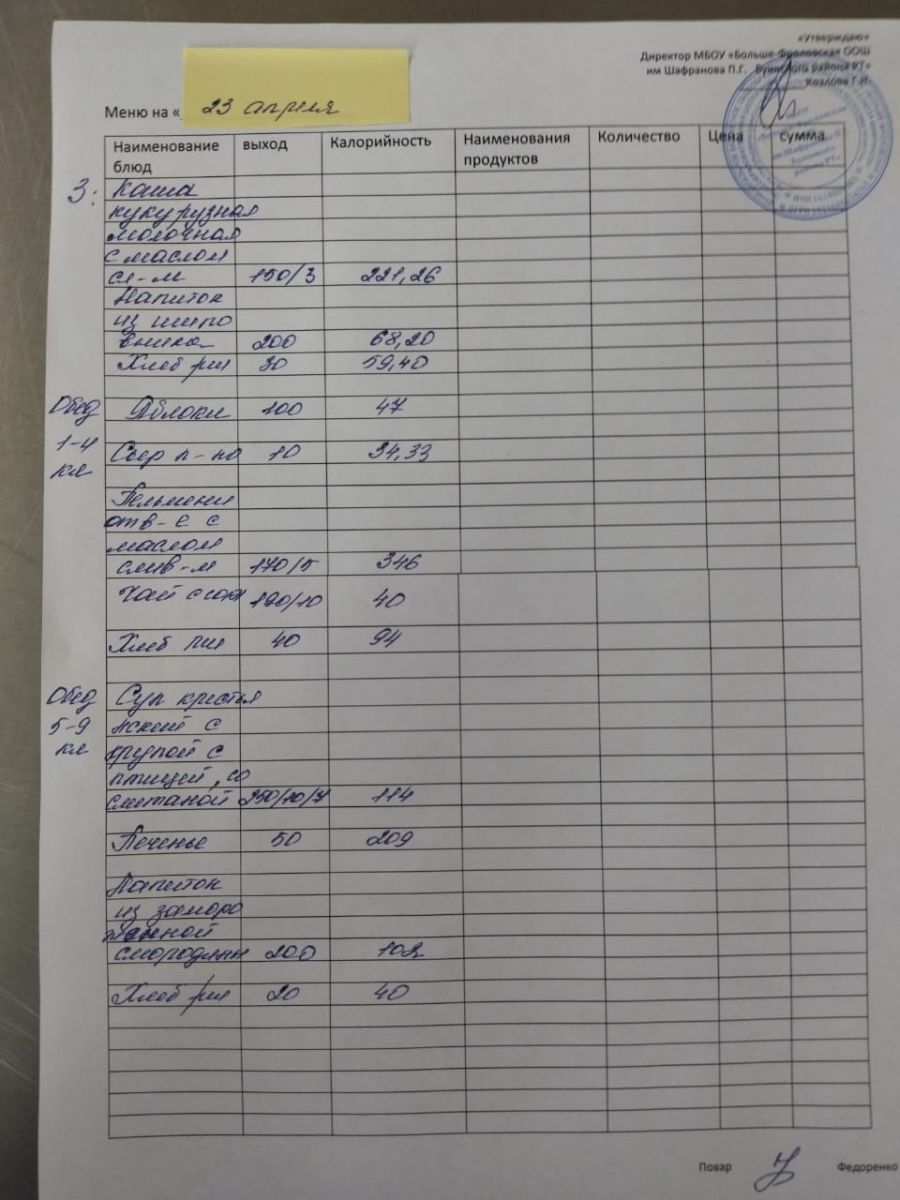 «Утверждаю»
Директор МБОУ «Больше-Фроловская ООШ
им Шафранова П.Г. Буинского района РТ»
Козлова Г.Н.
Меню на « 23 апреля
Наименование блюд выход Калорийность Наименования продуктов Количество Цена сумма
З: Каша
кукурузная
молочная
с маслом
сл-м 150/3 221,26
Напиток
из шипо
вника 200 68,20
Хлеб рж 30 59,40
Обед Яблоки 100 47
1-4 Сыр п-но 10 34,33
кл
Пельмени
отв-е с
маслом
слив-м 170/5 346
Чай с сах 190/10 40
Хлеб 40 94
Обед Суп крестья
5-9 нский с
кл крупой с
птицей, со
сметаной 250/10/7 114
Печенье 50 209
Напиток
из заморо
женной
смородины 200 102
Хлеб рж 20 40
Повар Федоренко